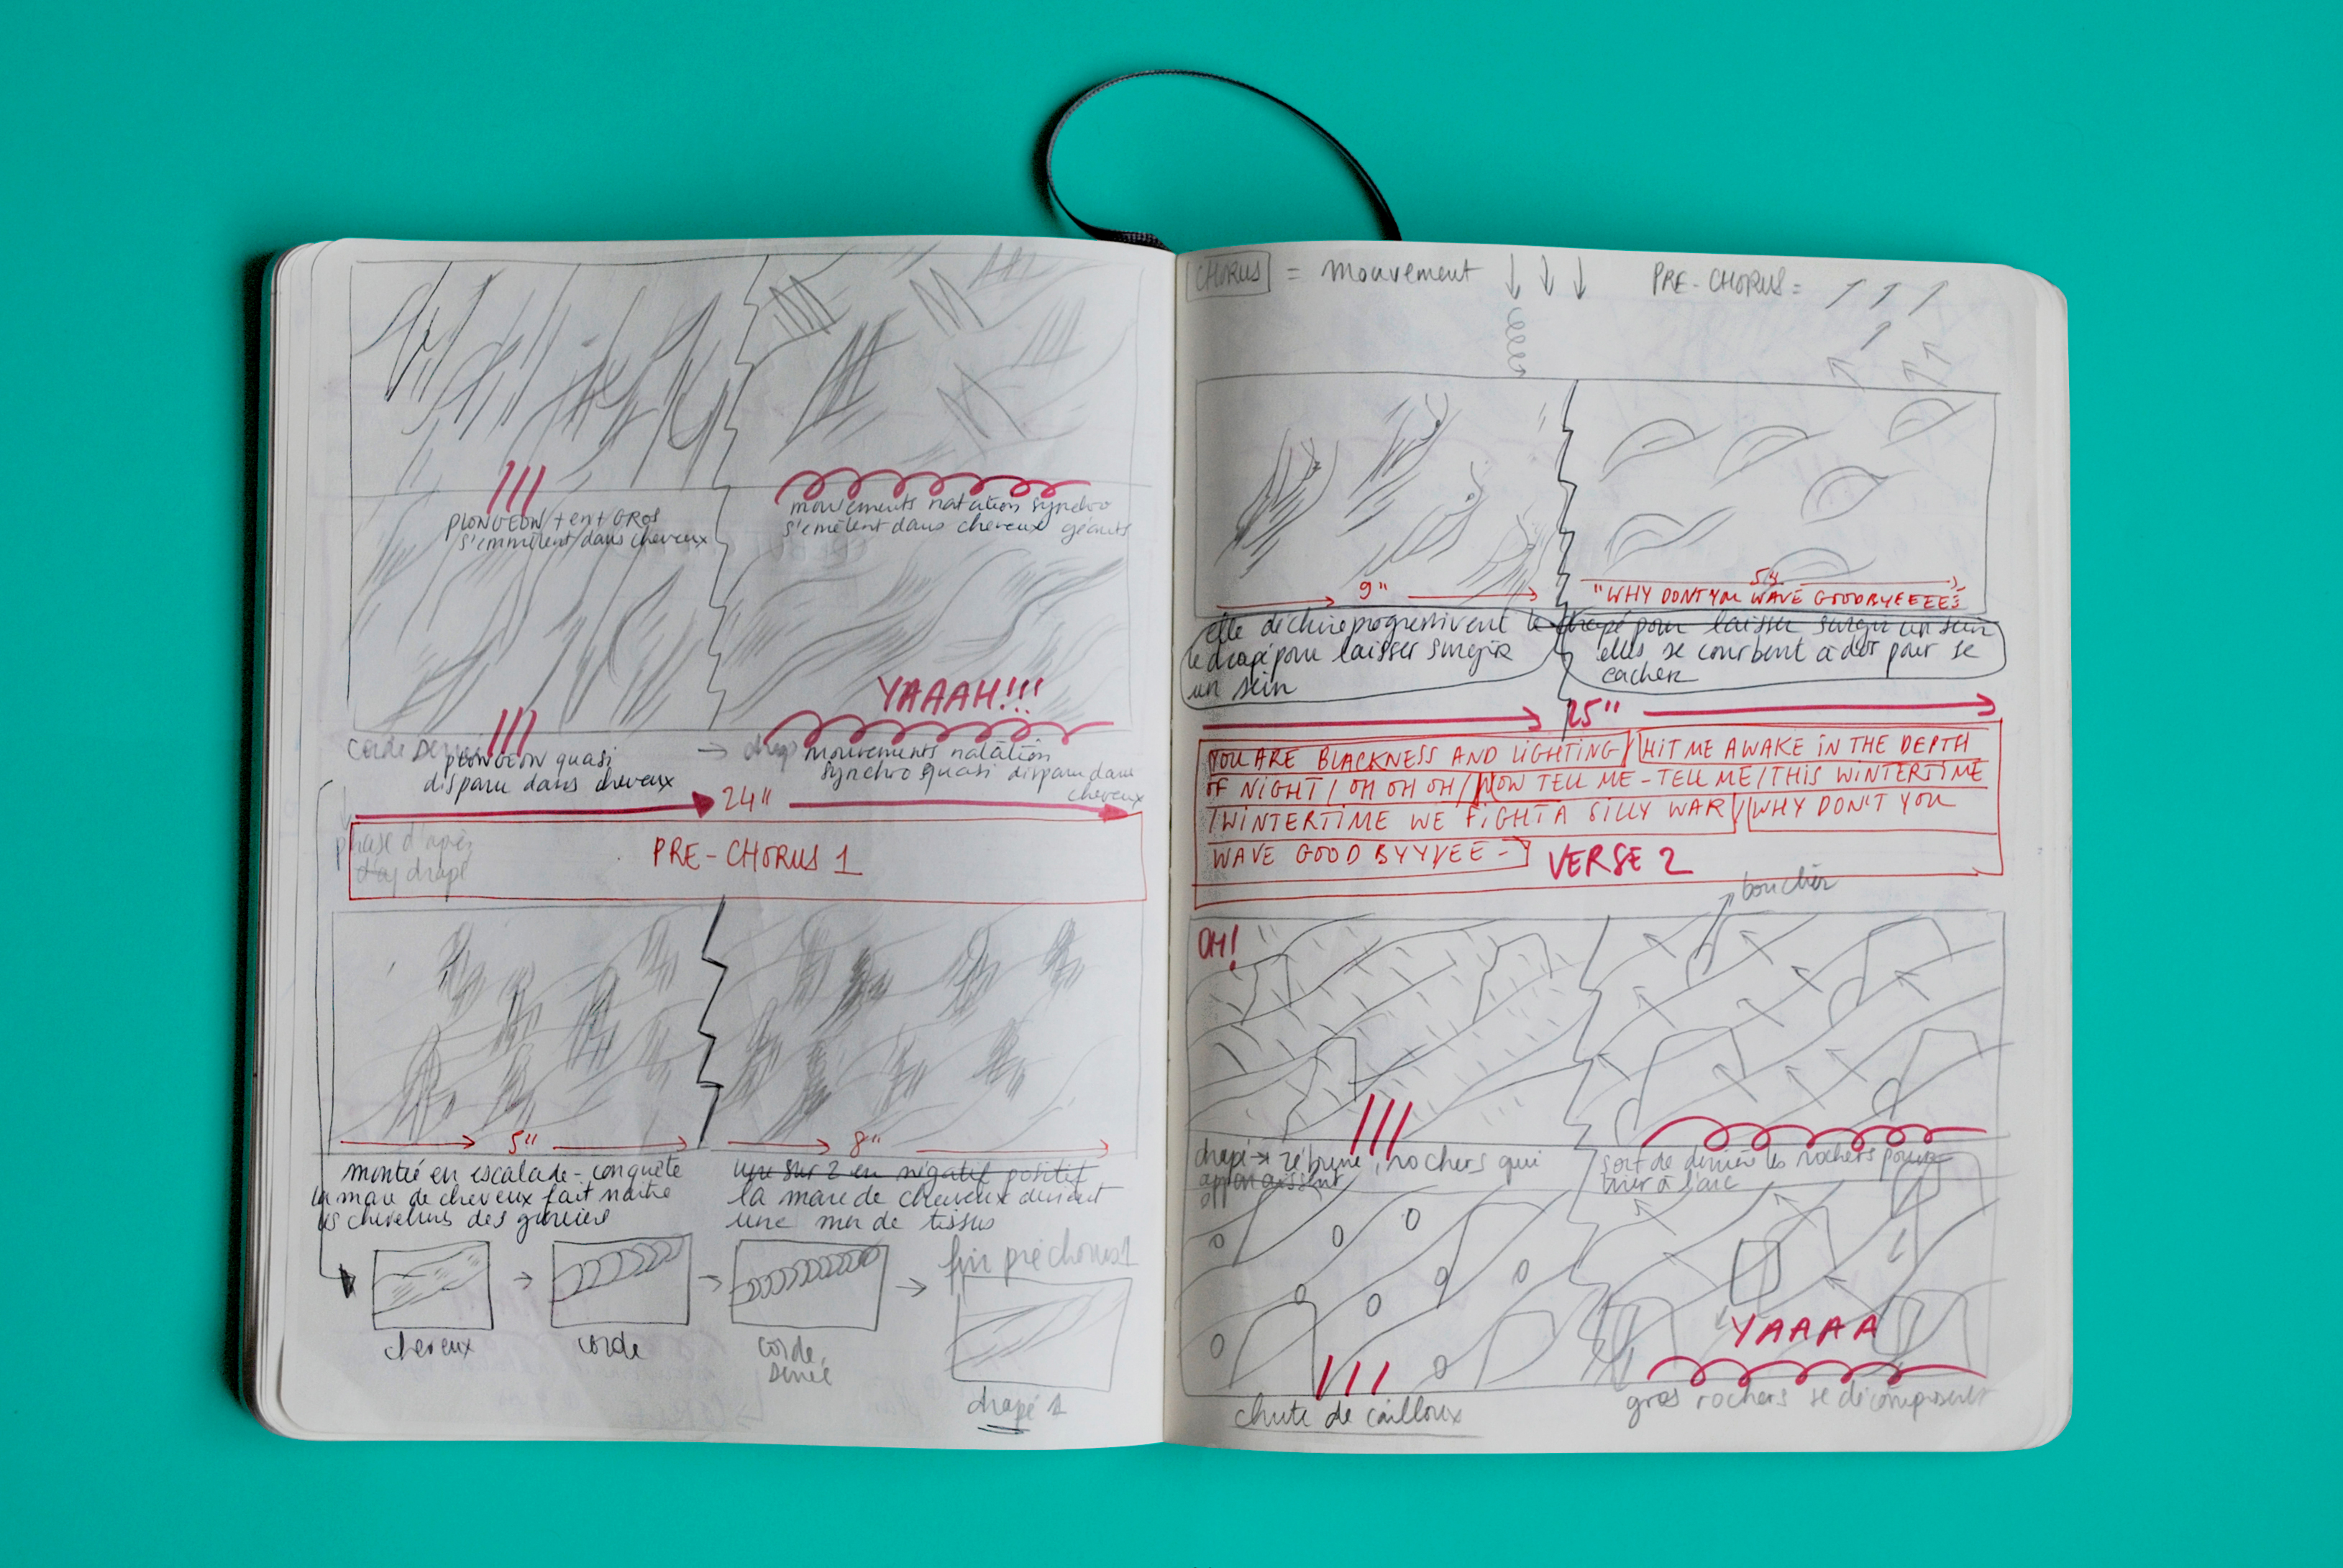 PLONGEON + en + GROS
s'emmêlent dans cheveux
mouvements natation synchro
s'emêlent dans cheveux géants
YAAAH!!!
corde
plongeon quasi
disparu dans cheveux
→ drap
mouvements natation
synchro quasi disparu dans
cheveux
24"
phase d'après
drapé
PRE-CHORUS 1
5"
8"
montée en escalade - conquête
la mare de cheveux fait naître
les chevelures des
une sur 2 en négatif positif
la mare de cheveux devient
une mer de tissus
cheveux
corde
corde
fin préchorus 1
drapé 1
CHORUS = mouvement ↓ ↓ ↓
PRE-CHORUS =
9"
"WHY DONT YOU WAVE GOODBYEEEES
elle déchire progressivent le drapé pour laisser surgir un sein
le drapé pour laisser surgir
un sein
elles se courbent à dos pour se
cacher
25"
YOU ARE BLACKNESS AND LIGHTING / HIT ME AWAKE IN THE DEPTH
OF NIGHT / OH OH OH / NOW TELL ME - TELL ME / THIS WINTERTIME
/ WINTERTIME WE FIGHT A SILLY WAR / WHY DON'T YOU
WAVE GOOD BYYYEE -
VERSE 2
bouclier
OH!
drapé → zébrure, rochers qui
apparaissent
sort de derrière les rochers pour
tirer à l'arc
YAAAA
chute de cailloux
gros rochers se décomposent